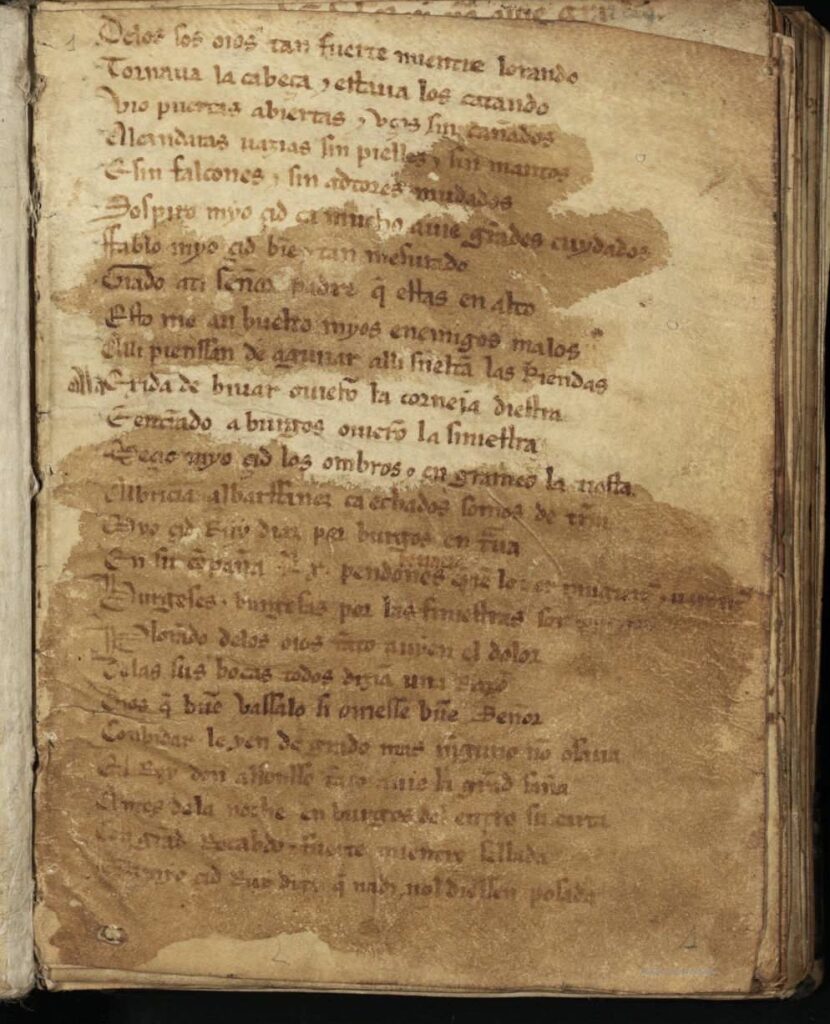 Delos sos oios tan fuerte mientre lorando
Tornaua la cabeça ⁊ estaua los catando
Vio puertas abiertas ⁊ vços sin cañados
Alcandaras uazias sin pielles ⁊ sin mantos
E sin falcones ⁊ sin adtores mudados
Sospiro myo çid ca mucho auie grãdes cuydados
Ffablo myo çid biẽ ⁊ tan mesurado
Grado ati señor padre q̃ estas en alto
Esto me an buelto myos enemigos malos
Alli pienssan de aguiiar alli sueltã las Riendas
Ala Exida de biuar ouierõ la corneja diestra
E entrãdo a burgos ouierõ la siniestra
Meçio myo çid los ombros ⁊ en grameo la tiesta
Albricia albarffanez ca echados somos de tr̃ra
Myo çid Ruy diaz por burgos en traua
En su cõpaña Lx pendones lo uer mugieres ⁊ uarones
Burgeses ⁊ burgesas por las finiestras son
Plorãdo delos oios tãto auyen el dolor
Delas sus bocas todos dizia una Razõ
Dios q̃ buẽ vassalo si ouiesse buẽ Señor
Conbidar le yen de grado mas ninguno nõ osaua
El Rey don alfonsso tãto auie la grãd saña
Antes dela noche en burgos del entro su carta
Con grãd Recabdo ⁊ fuerte mientre sellada
myo çid Ruy diaz q̃ nadi nol diessen posada